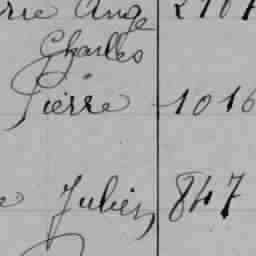 Ange
Charles
Pierre 1016
Julien 847